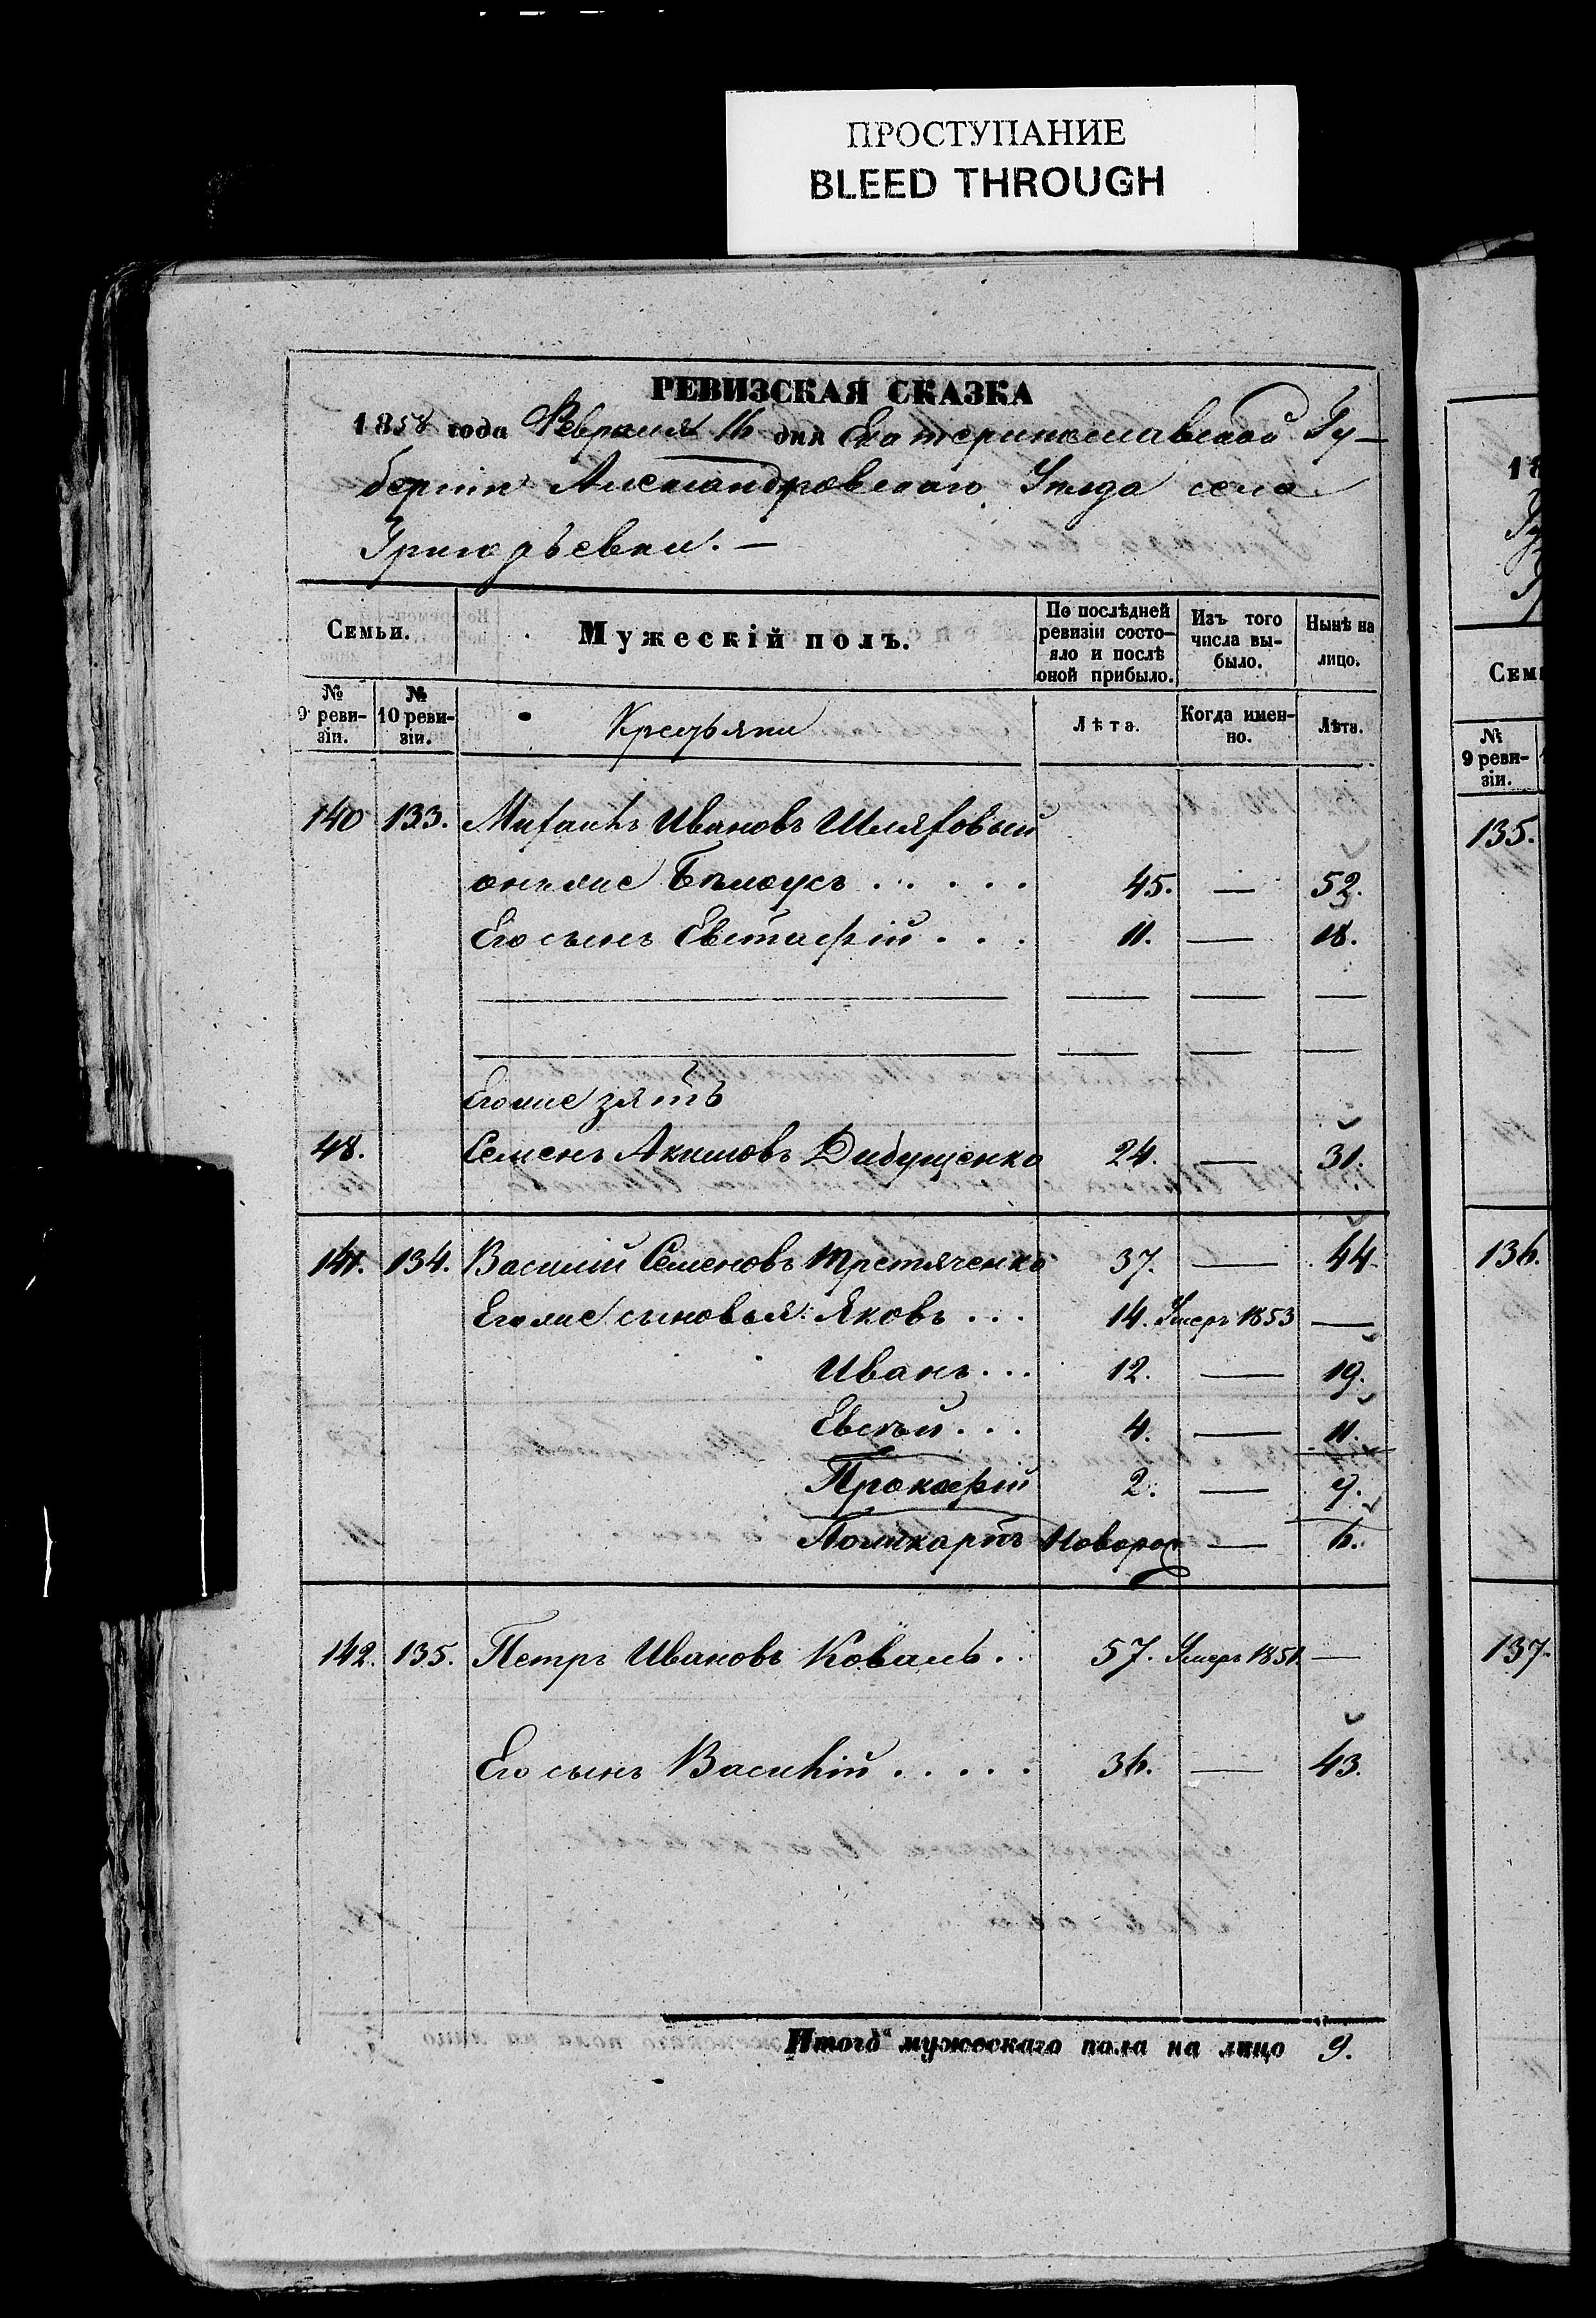 ПРОСТУПАНИЕ
BLEED THROUGH
РЕВИЗСКАЯ СКАЗКА
1858 года Февраля 16 дня Екатеринославской Гу-
берніи Александровскаго Уѣзда села
Григорьевки. —
Семьи.
Мужескій полъ.
По послѣдней ревизіи состо-яло и послѣ оной прибыло.
Изъ того числа вы-было.
Нынѣ на лицо.
№ 9 реви-зіи.
№ 10 реви-зіи.
Крестьяни
Лѣта.
Когда имен-но.
Лѣта.
140 133. Михаилъ Ивановъ Шляховый
онъ же Бѣлоусъ . . . . . 45. — 52.
Его сынъ Евстафій . . . 11. — 18.
Его же зять
48. Семенъ Акимовъ Дибущенко 24. — 31.
141. 134. Василій Семеновъ Третяченко 37. — 44.
Его же сыновья: Яковъ . . . 14. Умеръ 1853 —
Иванъ . . . 12. — 19.
Евсѣй . . . 4. — 11.
Прокофій 2. — 9.
Поликарпъ Новорож — 6.
142. 135. Петръ Ивановъ Коваль . . 57. Умеръ 1851. —
Его сынъ Василій . . . . . 36. — 43.
Итого мужескаго пола на лицо 9.
18
Сем
№ 9 реви-зіи.
135.
136.
137.